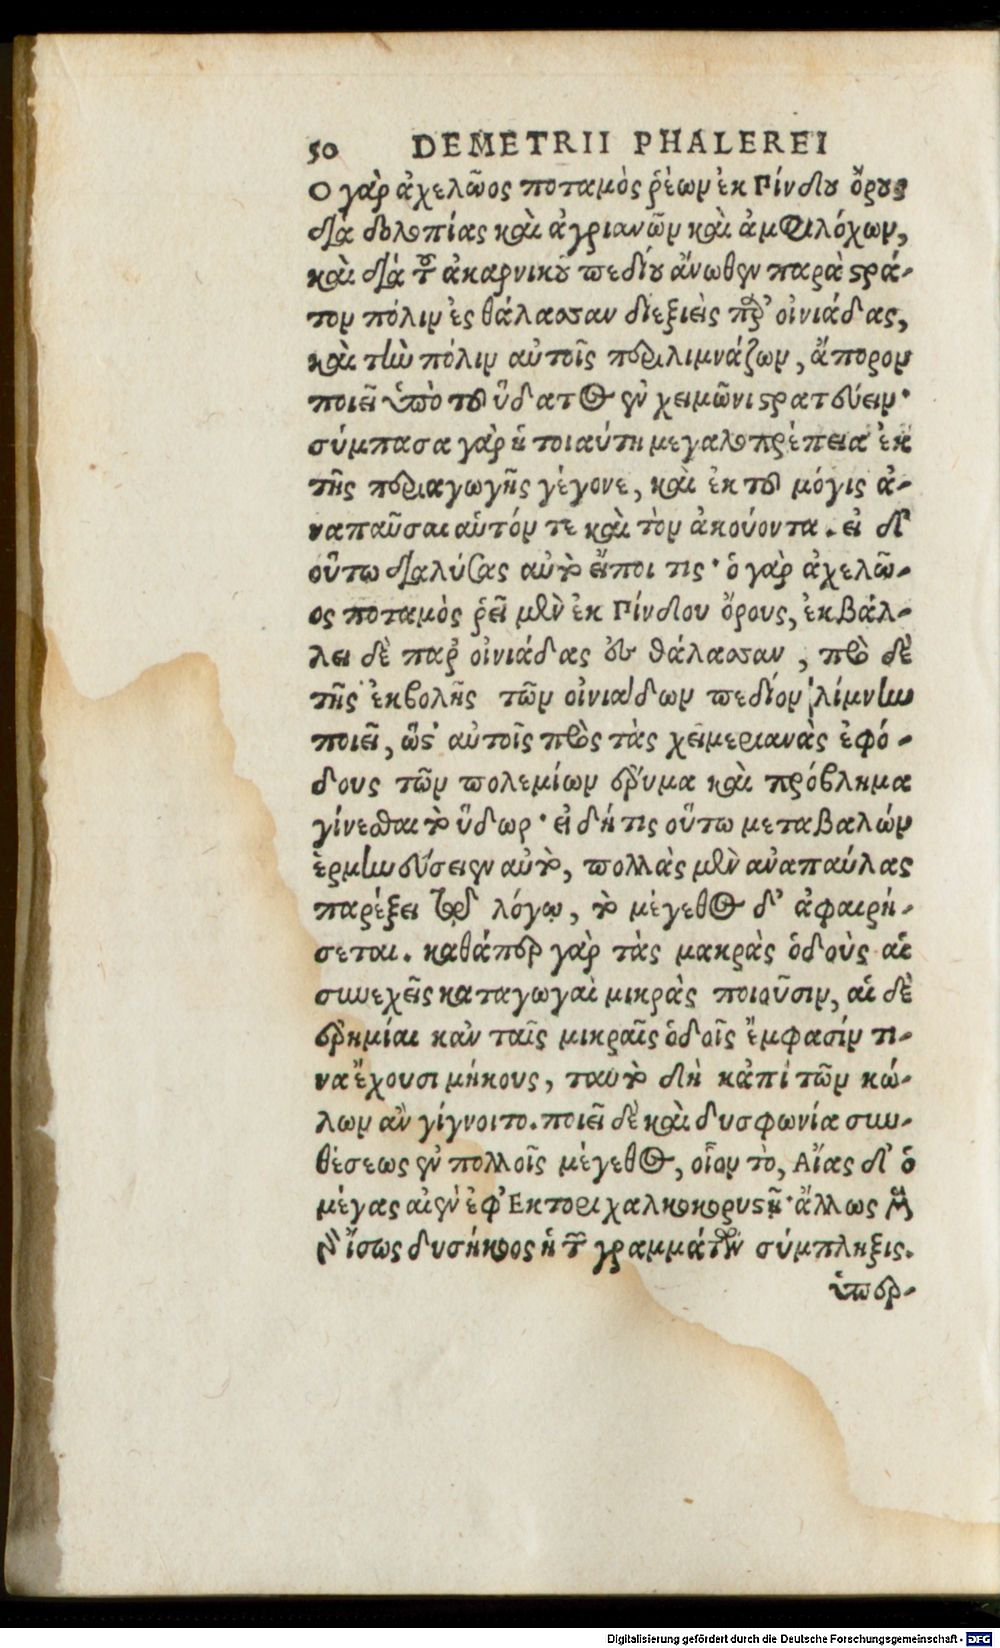 50 DEMETRII PHALEREI
Ο γὰρ ἀχελῶος ποταμὸς ῥέων ἐκ Πίνδου ὄρους
διὰ δολοπίας καὶ ἀγριανῶν καὶ ἀμφιλόχων,
καὶ διὰ τοῦ ἀκαρνικοῦ πεδίου ἄνωθεν παρὰ στρά-
τον πόλιν ἐς θάλασσαν διεξιεὶς παρ' οἰνιάδας,
καὶ τὴν πόλιν αὐτοῖς περιλιμνάζων, ἄπορον
ποιεῖ ὑπὸ τοῦ ὕδατος ἐν χειμῶνι στρατεύειν·
σύμπασα γὰρ ἡ τοιαύτη μεγαλοπρέπεια ἐκ
τῆς περιαγωγῆς γέγονε, καὶ ἐκ τοῦ μόγις ἀ-
ναπαῦσαι αὑτόν τε καὶ τὸν ἀκούοντα. εἰ δ'
οὕτω διαλύσας αὐτὸ εἴποι τις· ὁ γὰρ ἀχελῶ-
ος ποταμὸς ῥεῖ μὲν ἐκ Πίνδου ὄρους, ἐκβάλ-
λει δὲ παρ' οἰνιάδας ἐς θάλασσαν, πρὸ δὲ
τῆς ἐκβολῆς τῶν οἰνιαδων πεδίον λίμνην
ποιεῖ, ὥστ' αὐτοῖς πρὸς τὰς χειμεριανὰς ἐφό-
δους τῶν πολεμίων ἔρυμα καὶ πρόβλημα
γίνεσθαι τὸ ὕδωρ· εἰ δή τις οὕτω μεταβαλὼν
ἑρμηνεύσειεν αὐτὸ, πολλὰς μὲν ἀναπαύλας
παρέξει τῷ λόγῳ, τὸ μέγεθος δ' ἀφαιρή-
σεται. καθάπερ γὰρ τὰς μακρὰς ὁδοὺς αἱ
συνεχεῖς καταγωγαὶ μικρὰς ποιοῦσιν, αἱ δὲ
ἐρημίαι κἀν ταῖς μικραῖς ὁδοῖς ἔμφασίν τι-
να ἔχουσι μήκους, ταυτὸ δὴ κἀπὶ τῶν κώ-
λων ἂν γίγνοιτο. ποιεῖ δὲ καὶ δυσφωνία συν-
θέσεως ἐν πολλοῖς μέγεθος, οἷον τὸ, Αἴας δ' ὁ
μέγας αἰὲν ἐφ' Εκτορι χαλκοκορυστῇ· ἄλλως μὲν
γὰρ ἴσως δυσήκοος ἡ τῶν γραμμάτων σύμπληξις.
ὑπερ-
Digitalisierung gefördert durch die Deutsche Forschungsgemeinschaft - DFG